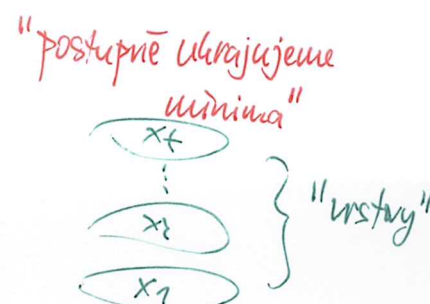 "postupně ukrajujeme
minima"
xt
⋮
x2
"vrstvy"
x1